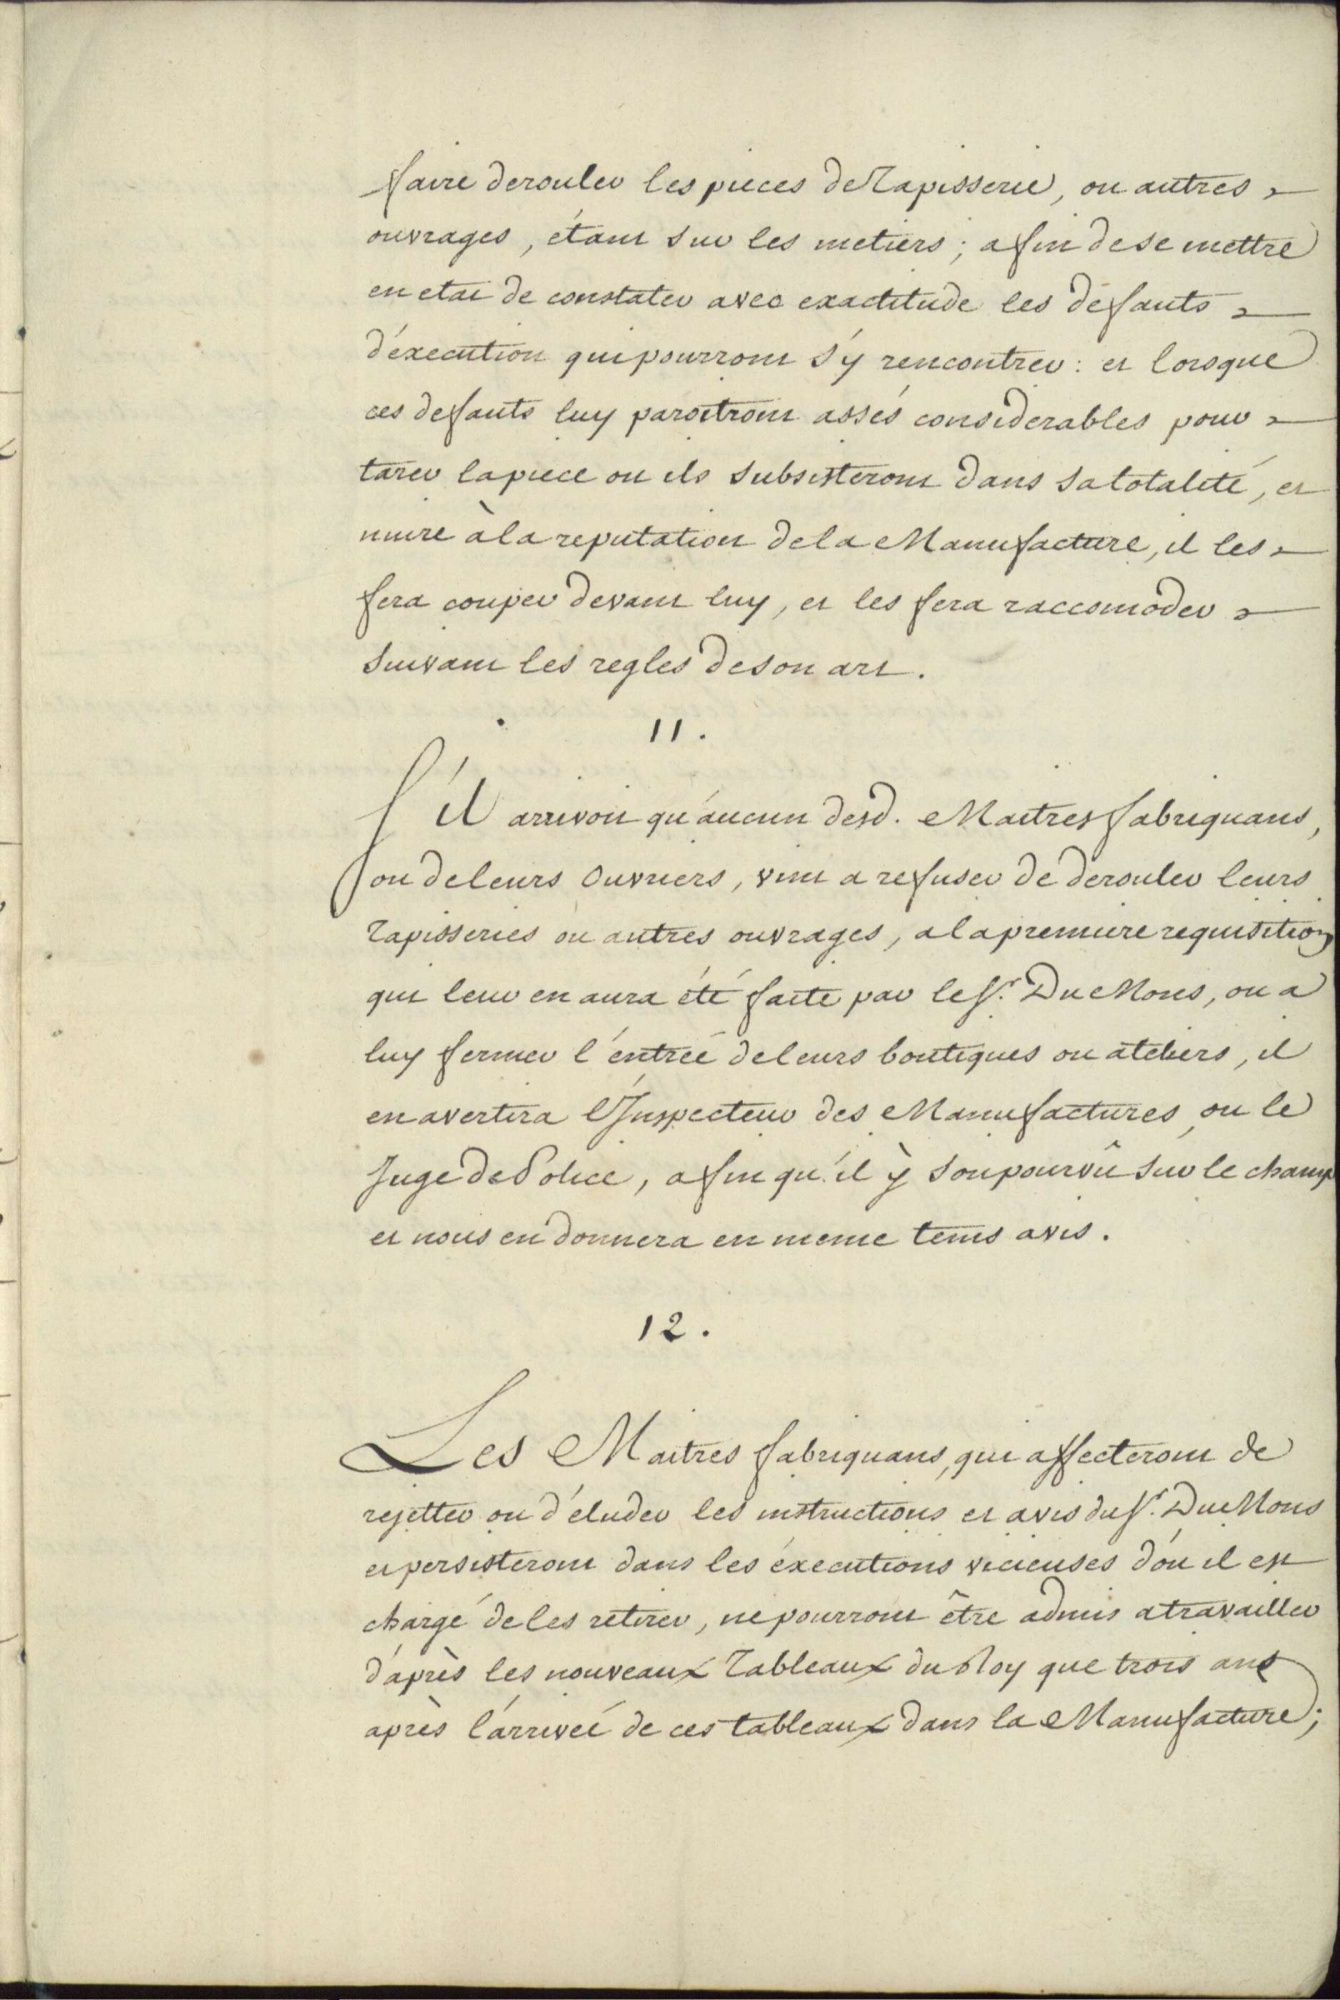 faire derouler les pieces de Tapisserie, ou autres
ouvrages, étant sur les metiers; afin de se mettre
en etat de constater avec exactitude les defauts
d'éxecution qui pourront s'y rencontrer: et lorsque
ces defauts luy paroitront assés considerables pour
tarer la piece ou ils subsisteront dans sa totalité, et
nuire à la reputation de la Manufacture, il les
fera couper devant luy, et les fera raccomoder
suivant les regles de son art.
11.
S'il arrivoit qu'aucun desd. Maitres fabriquans,
ou de leurs Ouvriers, vint a refuser de derouler leurs
Tapisseries ou autres ouvrages, a la premiere requisition
qui leur en aura été faite par le Sr. Du Mons, ou a
luy fermer l'entreé de leurs boutiques ou ateliers, il
en avertira l'Inspecteur des Manufactures, ou le
Juge de Police, afin qu'il ÿ soit pourvû sur le champ
et nous en donnera en meme tems avis.
12.
Les Maitres fabriquans, qui affecteront de
rejetter ou d'éluder les instructions et avis du Sr. Du Mons
et persisteront dans les éxecutions vicieuses d'ou il est
chargé de les retirer, ne pourront être admis a travailler
d'après les nouveaux Tableaux du Roy que trois ans
après l'arriveé de ces tableaux dans la Manufacture;